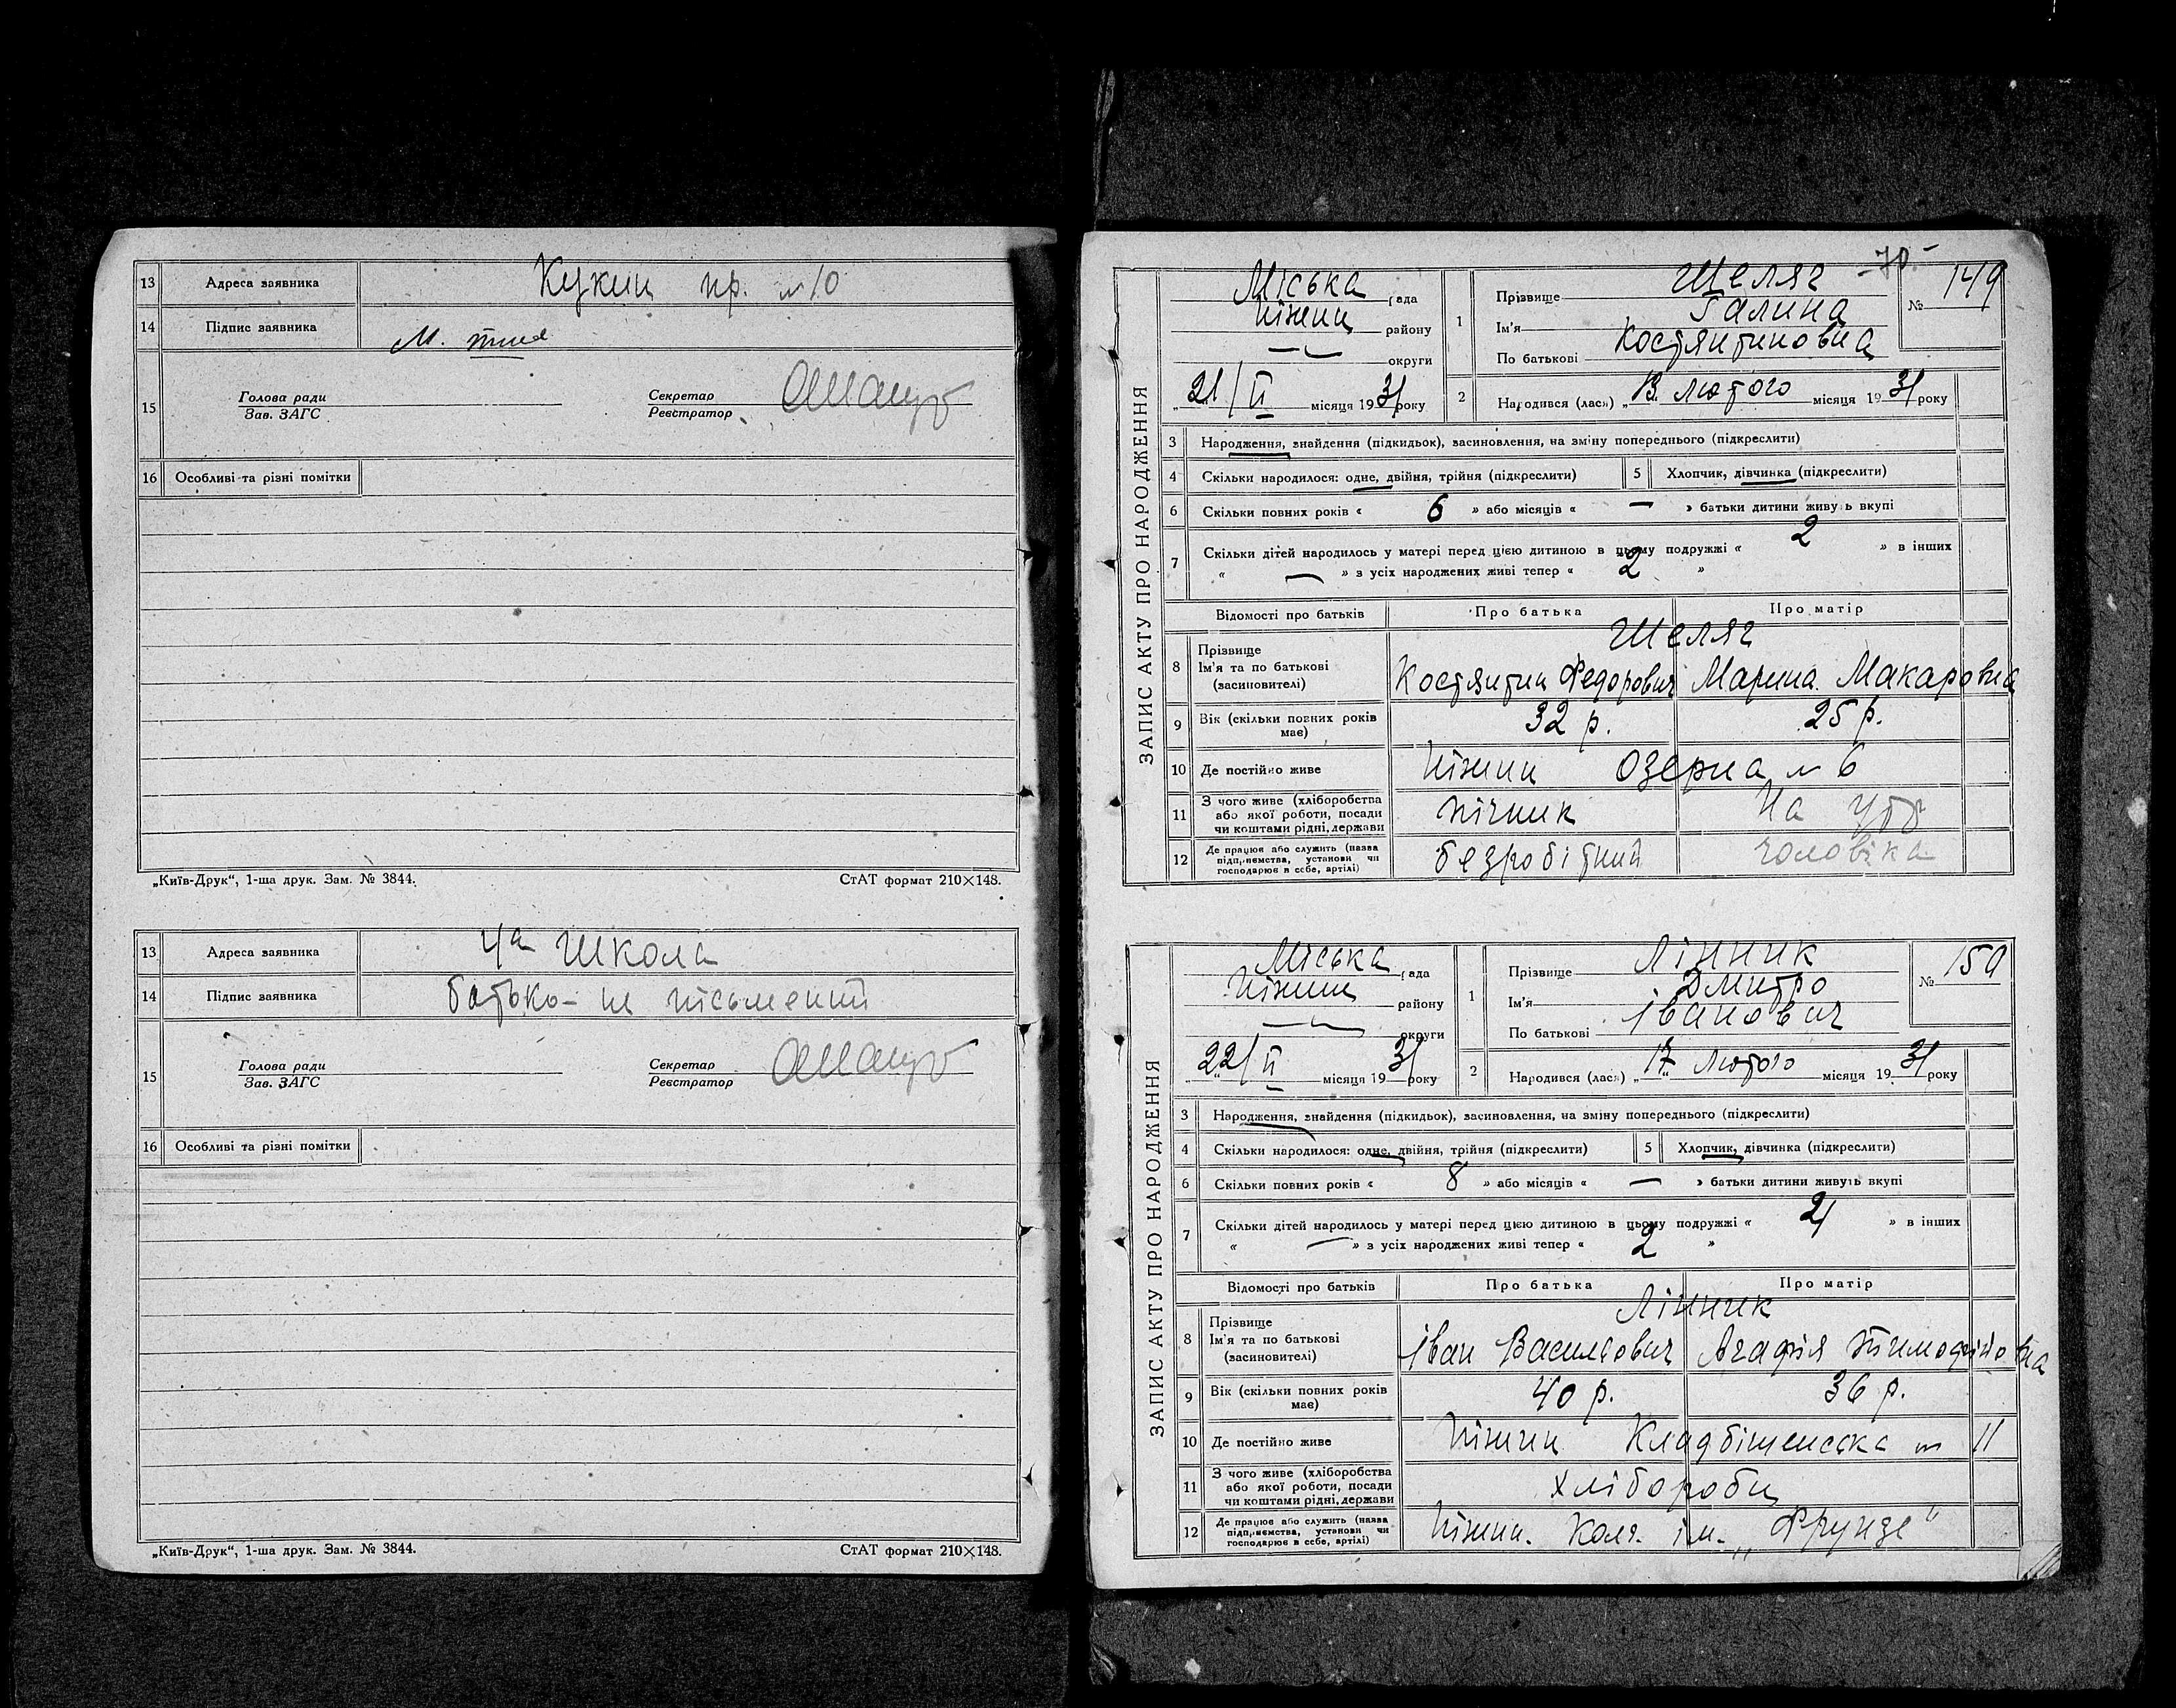 13 Адреса заявника Кукин пр. № 10
14 Підпис заявника М.
15 Голова ради Секретар
Зав. ЗАГС Реєстратор
16 Особливі та різні помітки
„Київ-Друк“, 1-ша друк. Зам. № 3844. СтАТ формат 210×148.
13 Адреса заявника 4а Школа
14 Підпис заявника батько – не письмений
15 Голова ради Секретар
Зав. ЗАГС Реєстратор
16 Особливі та різні помітки
„Київ-Друк“, 1-ша друк. Зам. № 3844. СтАТ формат 210×148.
-70-
ЗАПИС АКТУ ПРО НАРОДЖЕННЯ
Міська рада
Ніжин району
— округи
„21/II місяця 1931 року
1 Прізвище Шеляг
Ім'я Галина
По батькові Костянтиновна
№ 149
2 Народився (лась) „13„ лютого місяця 1931 року
3 Народження, знайдення (підкидьок), засиновлення, на зміну попереднього (підкреслити)
4 Скільки народилося: одне, двійня, трійня (підкреслити) 5 Хлопчик, дівчинка (підкреслити)
6 Скільки повних років « 6 » або місяців « — » батьки дитини живуть вкупі
7 Скільки дітей народилось у матері перед цією дитиною в цьому подружжі « 2 » в інших
« — » з усіх народжених живі тепер « 2 »
Відомості про батьків Про батька Про матір
8 Прізвище Шеляг
Ім'я та по батькові Костянтин Федорович Марина Макаровна
(засиновителі)
9 Вік (скільки повних років має) 32 р. 25 р.
10 Де постійно живе Ніжин Озерна № 6
11 З чого живе (хліборобства або якої роботи, посади чи коштами рідні, держави пічник На утр
12 Де працює або служить (назва підприємства, установи чи господарює в себе, артілі) безробітний чоловіка
ЗАПИС АКТУ ПРО НАРОДЖЕННЯ
Міська рада
Ніжин району
— округи
„22/II місяця 1931 року
1 Прізвище Лінник
Ім'я Дмитро
По батькові Іванович
№ 150
2 Народився (лась) „17„ Лютого місяця 1931 року
3 Народження, знайдення (підкидьок), засиновлення, на зміну попереднього (підкреслити)
4 Скільки народилося: одне, двійня, трійня (підкреслити) 5 Хлопчик, дівчинка (підкреслити)
6 Скільки повних років « 8 » або місяців « — » батьки дитини живуть вкупі
7 Скільки дітей народилось у матері перед цією дитиною в цьому подружжі « 2 » в інших
« — » з усіх народжених живі тепер « 2 »
Відомості про батьків Про батька Про матір
8 Прізвище Лінник
Ім'я та по батькові Іван Васильович Агафія Тимофійовна
(засиновителі)
9 Вік (скільки повних років має) 40 р. 36 р.
10 Де постійно живе Ніжин Кладбіщенська № 11
11 З чого живе (хліборобства або якої роботи, посади чи коштами рідні, держави хлібороби
12 Де працює або служить (назва підприємства, установи чи господарює в себе, артілі) Ніжин. Колг. ім. „Фрунзе“